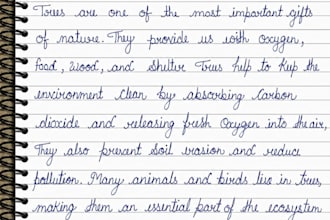 Trees are one of the most important gifts
of nature. They provide us with Oxygen,
food, Wood, and Shelter Trees help to Keep the
environment Clean by absorbing Carbon
dioxide and releasing fresh Oxygen into the air,
They also prevent Soil erosion and reduce
pollution. Many animals and birds live in trees,
making them an essential part of the ecosystem